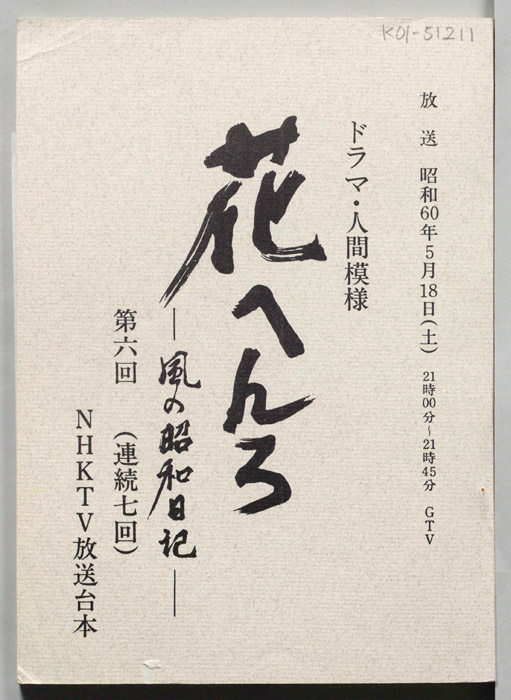 K01-51211
放送 昭和60年5月18日(土) 21時00分~21時45分 GTV
ドラマ・人間模様
花へんろ
―風の昭和日記―
第六回 (連続七回)
NHKTV放送台本